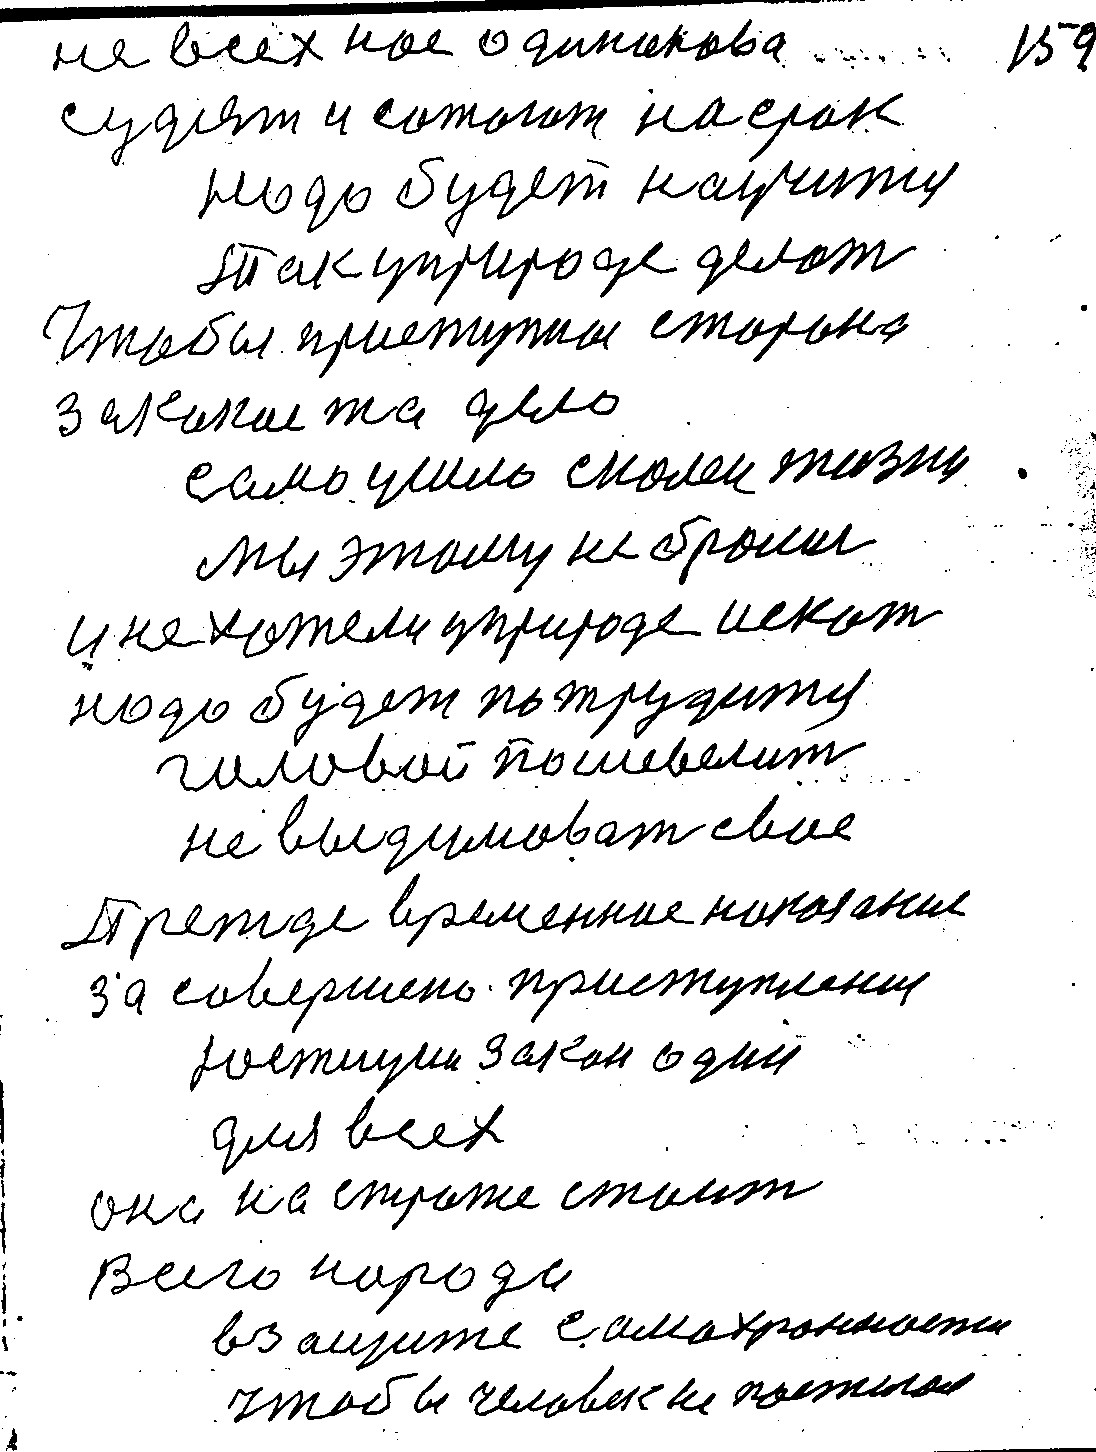 не всех нас одинакова 159
судят и сожают на срок
надо будет научится
так у природе делат
Чтобы приступна сторона
за какое та дело
само ушло с моеи жизни
мы этому не брали
и не хотели у природе искат
надо будет потрудится
галовой пошевелит
не выдумоват свое
Прежде временное наказание
за совершено приступления
юстиции закон один
для всех
она на страже стоит
Всего народа
в защите самохранности
чтобы человек не